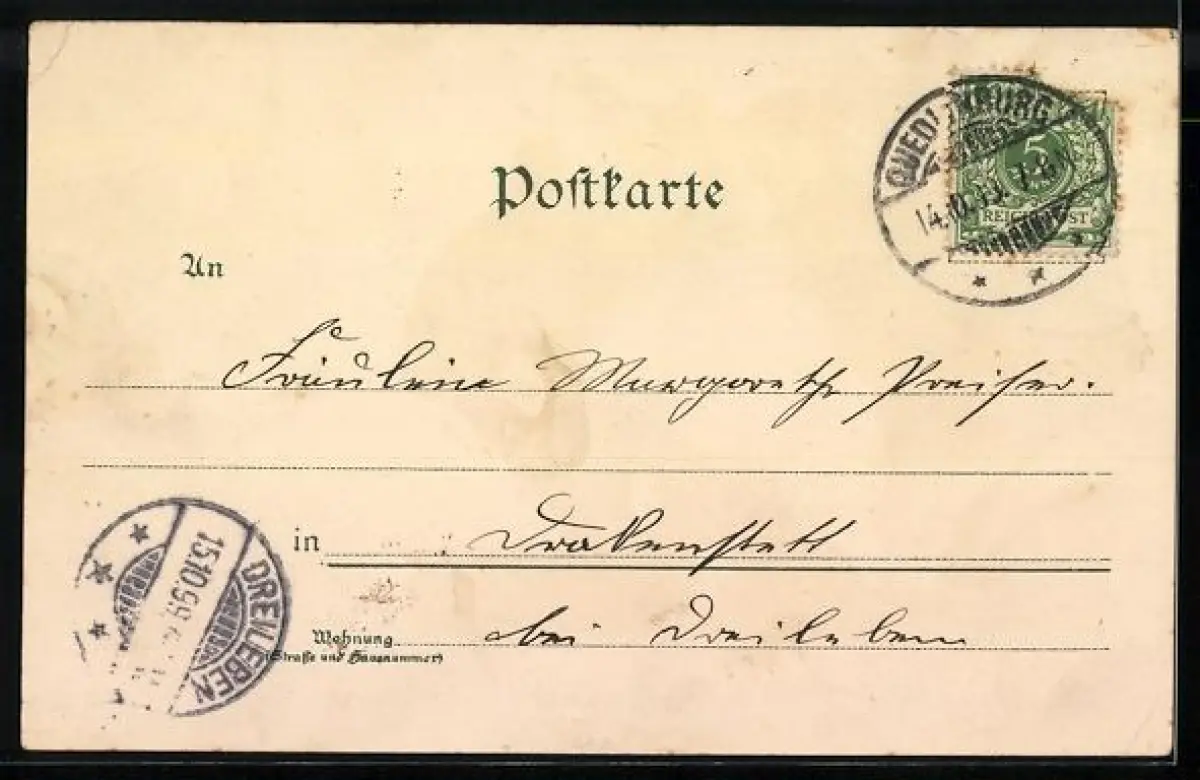 Postkarte
QUEDLINBURG
14.10.99. 7-8 N
5
REICHSPOST
An
Fräulein Margarethe Preiser.
in Drakenstedt
bei Dreileben
Wohnung
(Straße und Hausnummer)
DREILEBEN
15.10.99.